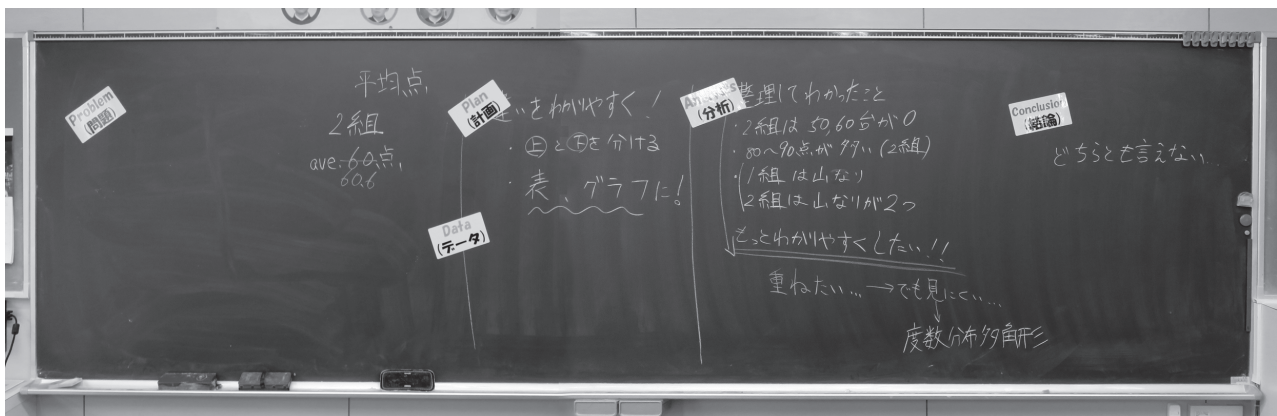 Problem
(問題)
平均点
2組
ave. 60点
60.6
Plan
(計画)
いをわかりやすく！
・上と下を分ける
・表、グラフに！
Data
(データ)
(分析)
整理してわかったこと
・2組は50,60台が0
・80〜90点が多い(2組)
・1組は山なり
2組は山なりが2つ
もっとわかりやすくしたい!!
重ねたい…→でも見にくい…
度数分布多角形
Conclusion
(結論)
どちらとも言えない…